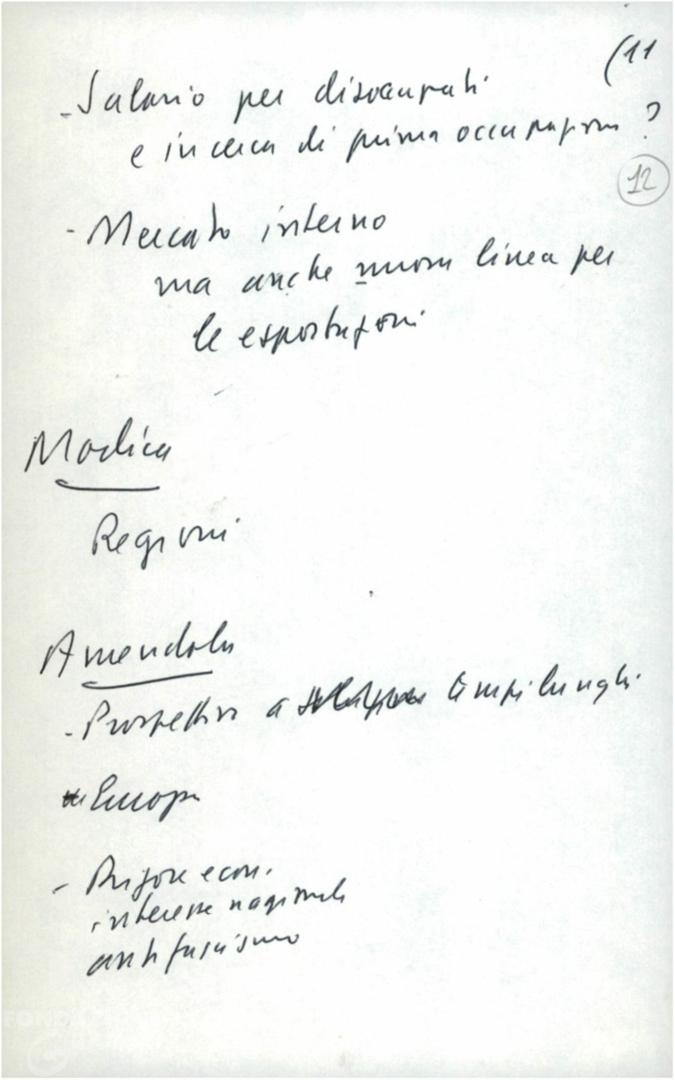 (11
- Salario per disoccupati
e in cerca di prima occupazione ?
12
- Mercato interno
ma anche nuova linea per
le esportazioni
Modica
Regioni
Amendola
- Prospettiva a tempi lunghi
Europa
- econ.
interesse nazionale
antifascismo
FOND